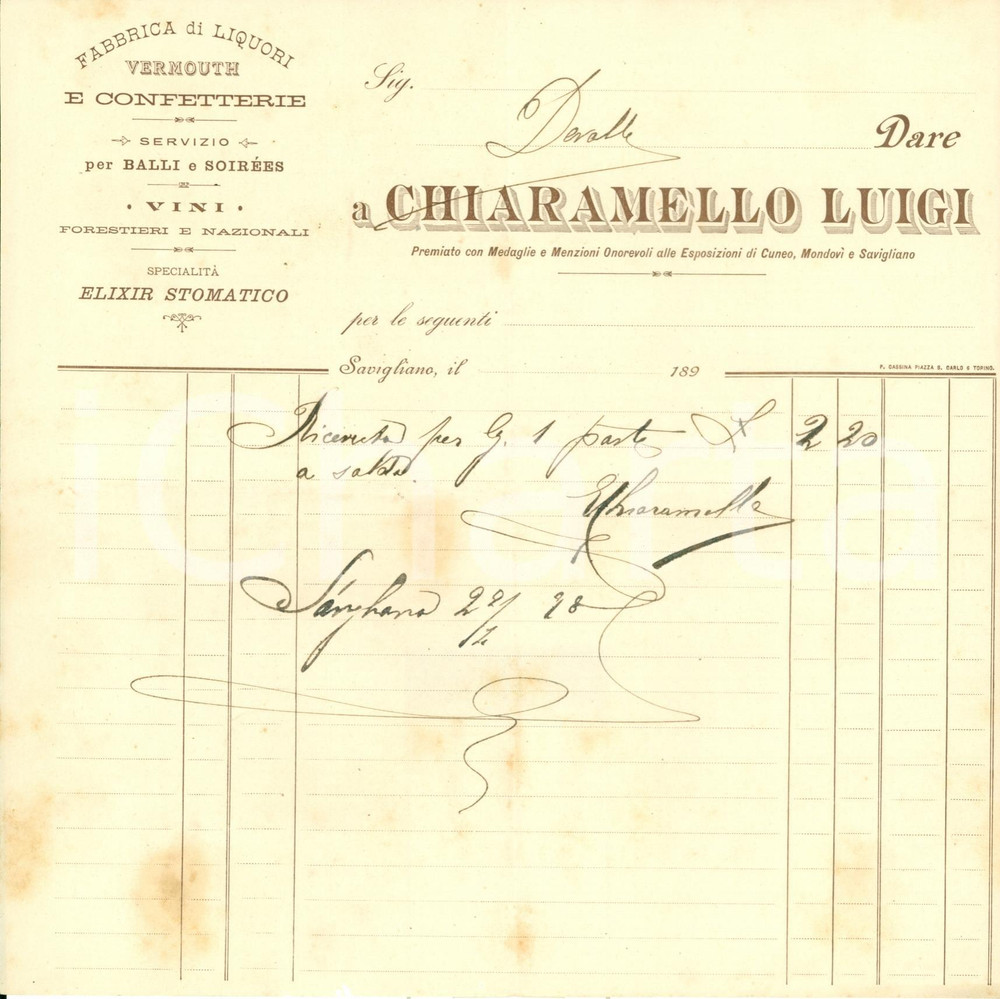 FABBRICA di LIQUORI
VERMOUTH
E CONFETTERIE
SERVIZIO
per BALLI e SOIRÉES
• VINI •
FORESTIERI E NAZIONALI
SPECIALITÀ
ELIXIR STOMATICO
Sig.
Devalle
Dare
a CHIARAMELLO LUIGI
Premiato con Medaglie e Menzioni Onorevoli alle Esposizioni di Cuneo, Mondovì e Savigliano
per le seguenti
Savigliano, il 189
F. CASSINA PIAZZA S. CARLO 6 TORINO.
Ricevuto per 1 2 20
a saldo.
Chiaramello
22/ 98